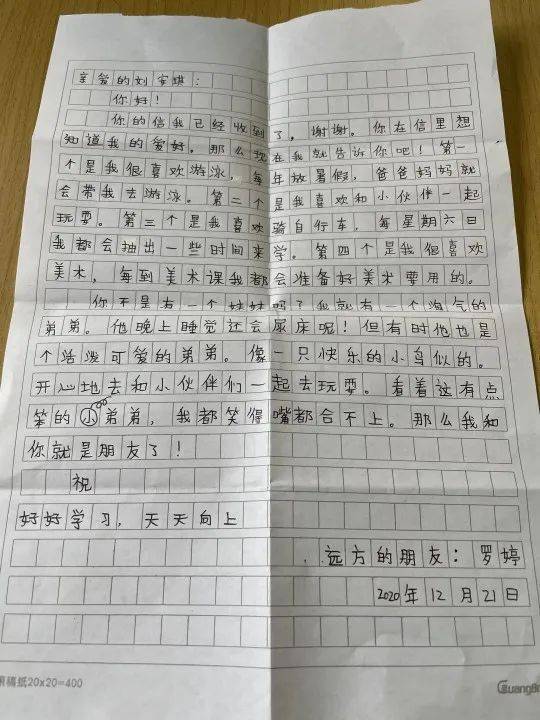 亲爱的刘安琪：
你好！
你的信我已经收到了，谢谢。你在信里想
知道我的爱好。那么现在我就告诉你吧！第一
个是我很喜欢游泳，每年放暑假，爸爸妈妈就
会带我去游泳。第二个是我喜欢和小伙伴一起
玩耍。第三个是我喜欢骑自行车，每星期六日
我都会抽出一些时间来学。第四个是我很喜欢
美术，每到美术课我都会准备好美术要用的。
你不是有一个妹妹吗？我就有一个淘气的
弟弟。他晚上睡觉还会尿床呢！但有时他也是
个活泼可爱的弟弟。像一只快乐的小鸟似的。
开心地去和小伙伴们一起去玩耍。看着这有点
笨的小弟弟，我都笑得嘴都合不上。那么我和
你就是朋友了！
祝
好好学习，天天向上
远方的朋友：罗婷
2020年12月21日
稿纸20x20=400
GuangBo